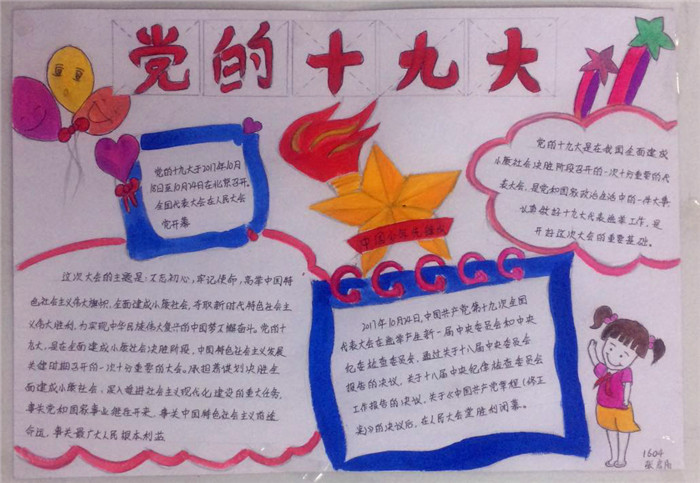 党的十九大
党的十九大于2017年10月
18日至10月24日在北京召开。
全国代表大会在人民大会
堂开幕
党的十九大是在我国全面建成
小康社会决胜阶段召开的一次十分重要的代
表大会,是党和国家政治生活中的一件大事
认真做好十九大代表选举工作,是
开好这次大会的重要基础。
中国少年先锋队
这次大会的主题是:不忘初心,牢记使命,高举中国特
色社会主义伟大旗帜,全面建成小康社会,夺取新时代特色社会主
义伟大胜利,为实现中华民族伟大复兴的中国梦不懈奋斗。党的十
九大,是在全面建成小康社会决胜阶段,中国特色社会主义发展
关键时期召开的一次十分重要的大会。承担着谋划决胜全
面建成小康社会,深入推进社会主义现代化建设的重大任务,
事关党和国家事业继往开来,事关中国特色社会主义前途
命运,事关最广大人民根本利益
2017年10月24日,中国共产党第十九次全国
代表大会在选举产生新一届中央委员会和中央
纪委检查委员会,通过关于十八届中央委员会
报告的决议,关于十八届中央纪律检查委员会
工作报告的决议,关于《中国共产党章程(修正
案)》的决议后,在人民大会堂胜利闭幕。
1604
张